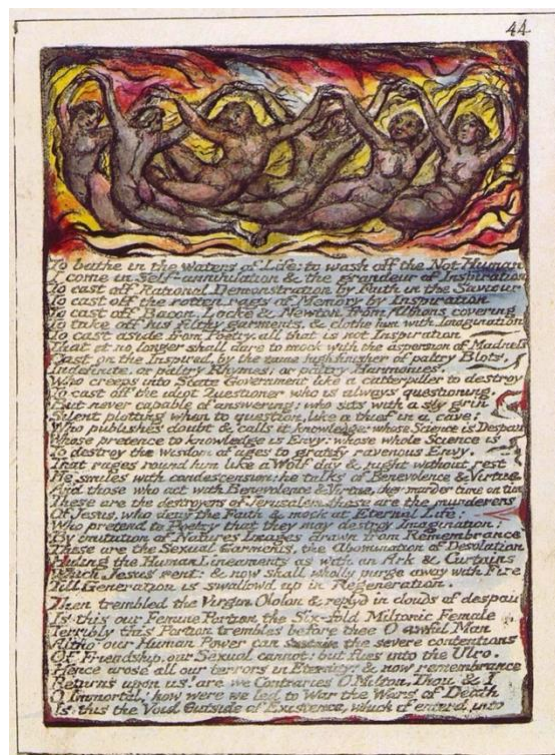 44
To bathe in the Waters of Life; to wash off the Not Human
I come in Self-annihilation & the grandeur of Inspiration
To cast off Rational Demonstration by Faith in the Saviour
To cast off the rotten rags of Memory by Inspiration
To cast off Bacon, Locke & Newton from Albions covering
To take off his filthy garments, & clothe him with Imagination
To cast aside from Poetry, all that is not Inspiration
That it no longer shall dare to mock with the aspersion of Madness
Cast on the Inspired, by the tame high finisher of paltry Blots,
Indefinite, or paltry Rhymes; or paltry Harmonies.
Who creeps into State Government like a catterpiller to destroy
To cast off the idiot Questioner who is always questioning,
But never capable of answering; who sits with a sly grin
Silent plotting when to question, like a thief in a cave;
Who publishes doubt & calls it knowledge; whose Science is Despair
Whose pretence to knowledge is Envy: whose whole Science is
To destroy the wisdom of ages to gratify ravenous Envy,
That rages round him like a Wolf day & night without rest
He smiles with condescension; he talks of Benevolence & Virtue
And those who act with Benevolence & Virtue, they murder time on time
These are the destroyers of Jerusalem, these are the murderers
Of Jesus, who deny the Faith & mock at Eternal Life:
Who pretend to Poetry that they may destroy Imagination;
By imitation of Natures Images drawn from Remembrance
These are the Sexual Garments, the Abomination of Desolation
Hiding the Human Lineaments as with an Ark & Curtains
Which Jesus rent: & now shall wholly purge away with Fire
Till Generation is swallowd up in Regeneration.
Then trembled the Virgin Ololon & replyd in clouds of despair
Is this our Femine Portion the Six-fold Miltonic Female
Terribly this Portion trembles before thee O awful Man
Altho' our Human Power can sustain the severe contentions
Of Friendship, our Sexual cannot: but flies into the Ulro.
Hence arose all our terrors in Eternity! & now remembrance
Returns upon us! are we Contraries O Milton, Thou & I
O Immortal! how were we led to War the Wars of Death
Is this the Void Outside of Existence, which if enterd into